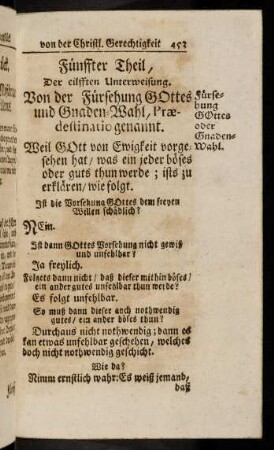 von der Christl. Gerechtigkeit 453
Fünffter Theil,
Der eilfften Unterweisung.
Von der Fürsehung GOttes
und Gnaden-Wahl, Præ-
destinatio genannt.
Fürse-
hung
GOttes
oder
Gnaden-
Wahl.
Weil GOtt von Ewigkeit vorge-
sehen hat / was ein jeder böses
oder guts thun werde ; ists zu
erklären / wie folgt.
Ist die Vorsehung GOttes dem freyen
Willen schädlich?
NEin.
Ist dann GOttes Vorsehung nicht gewiß
und unfehlbar?
Ja freylich.
Folgets dann nicht / daß dieser mithin böses /
ein ander gutes unfehlbar thun werde?
Es folgt unfehlbar.
So muß dann dieser auch nothwendig
gutes / ein ander böses thun?
Durchaus nicht nothwendig; dann es
kan etwas unfehlbar geschehen, welches
doch nicht nothwendig geschicht.
Wie da?
Nimm ernstlich wahr: Es weiß jemand,
daß